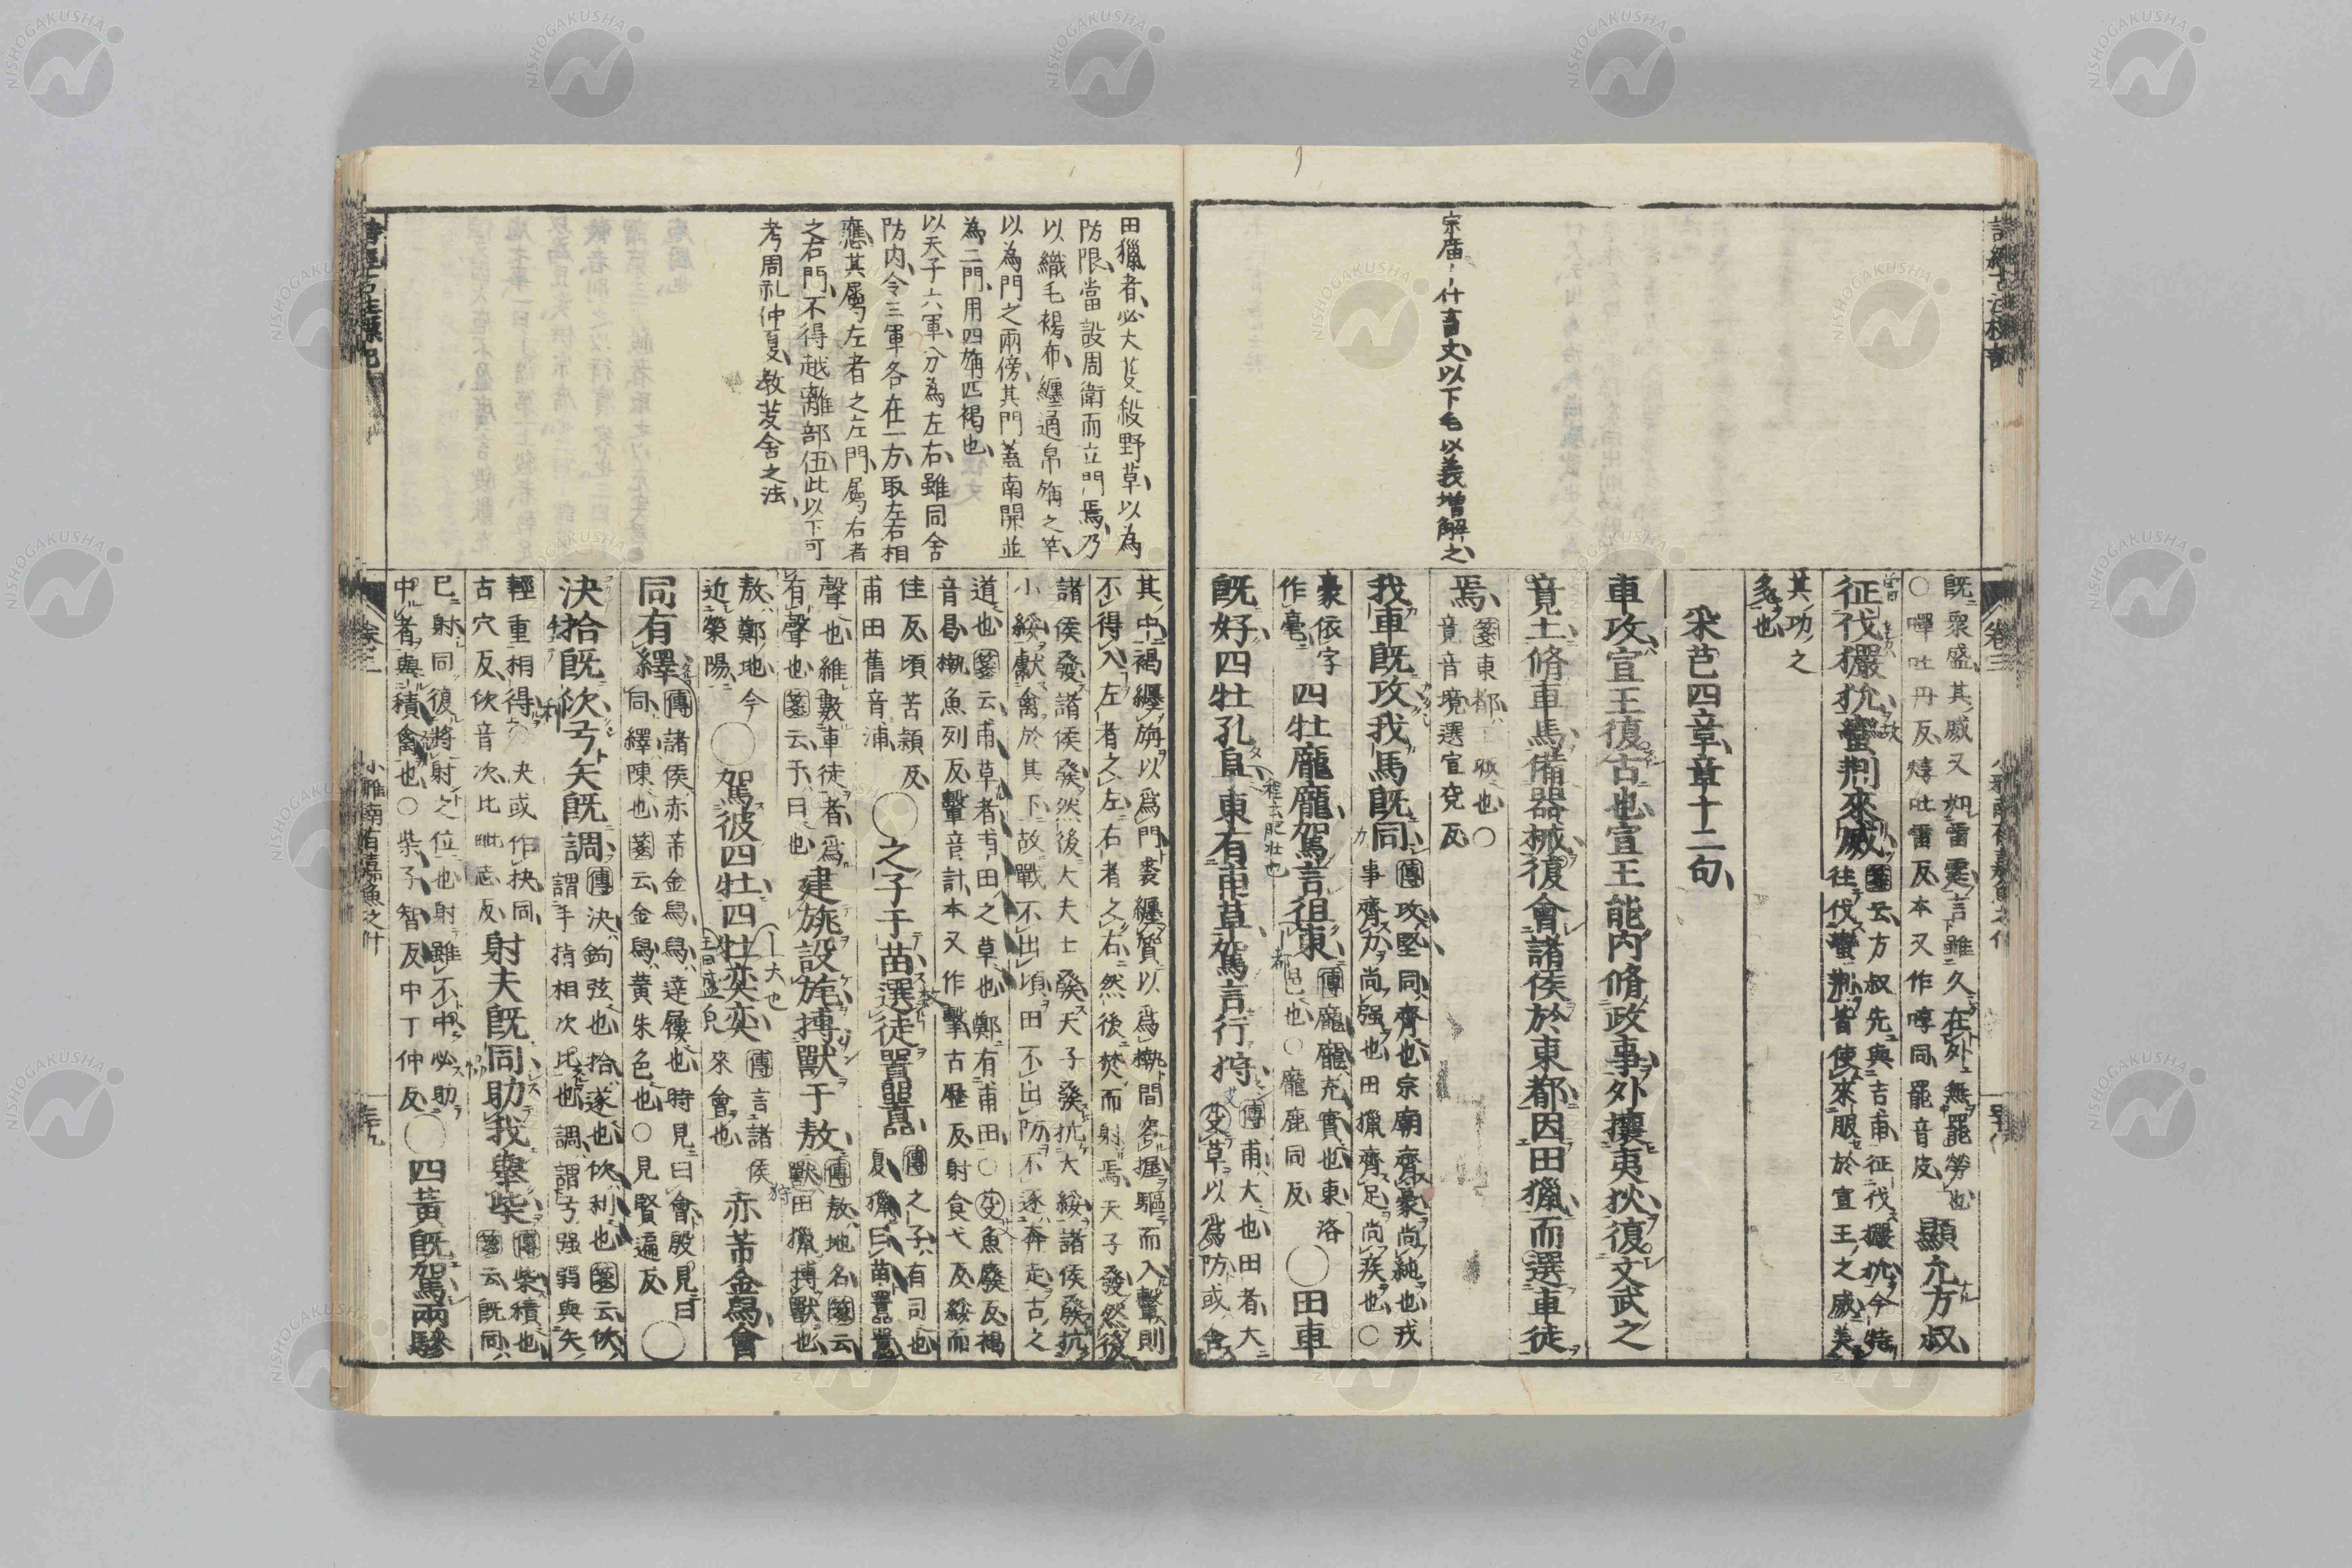 宗廟、什言丈以下毛以義増解之
既衆盛其威又如雷霆言雖久在外無罷勞也
○嘽吐丹反焞吐雷反本又作啍同罷音皮
顯允方叔
征伐玁狁蠻荆來威
箋云方叔先與吉甫征伐玁狁今特
往伐蠻荆皆使來服於宣王之威美
其功之
多也
采芑四章章十二句
車攻宣王復古也宣王能内脩政事外攘夷狄復文武之
竟土脩車馬備器械復會諸侯於東都因田獵而選車徒
焉
箋東都王城也○
竟音境選宣兗反
我車既攻我馬既同
傳攻堅同齊也宗廟齊豪尚純也戎
事齊力尚强也田獵齊足尚疾也○
豪依字
作毫
四牡龐龐駕言徂東
傳龐龐充實也東洛
邑也○龐鹿同反
○田車
既好四牡孔阜東有甫草駕言行狩
傳甫大也田者大
芟草以爲防或舍
程云肥壯也
田獵者必大芟殺野草以為
防限當設周衛而立門焉乃
以織毛褐布纏通帛旃之竿
以為門之兩傍其門蓋南開並
為二門用四旃四褐也
以天子六軍分為左右雖同舍
防内令三軍各在一方取左右相
應其屬左者之左門屬右者
之右門不得越離部伍此以下可
考周礼仲夏教茇舍之法
其中褐纏旃以爲門裘纏質以爲槸間容握驅而入轚則
不得入左者之左右者之右然後焚而射焉天子發然後
諸侯發諸侯發然後大夫士發天子發抗大綏諸侯發抗
小綏獻禽於其下故戰不出頃田不出防不逐奔走古之
道也箋云甫草者甫田之草也鄭有甫田○芟魚廢反褐
音曷槸魚列反轚音計本又作擊古歷反射食弋反綏而
佳反頃苦穎反
甫田舊音浦
○之子于苗選徒囂囂
傳之子有司也
夏獵曰苗囂囂
聲也維數車徒者爲
有聲也箋云于曰也
建旐設旄搏獸于敖
傳敖地名箋云
獸田獵搏獸也
敖鄭地今
近滎陽
○駕彼四牡四牡奕奕
傳言諸侯
來會也
赤芾金舄會
同有繹
傳諸侯赤芾金舄舄達屨也時見曰會殷見曰
同繹陳也箋云金舄黄朱色也○見賢遍反
○
決拾既佽弓矢既調
傳決鉤弦也拾遂也佽利也箋云佽
謂手指相次比也調謂弓强弱與矢
輕重相得○夬或作抉同
古穴反佽音次比毗志反
射夫既同助我舉柴
傳柴積也
箋云既同
已射同復將射之位也射雖不中必助
中者與積禽也○柴子智反中丁仲反
○四黄既駕兩驂
小雅南有嘉魚之什